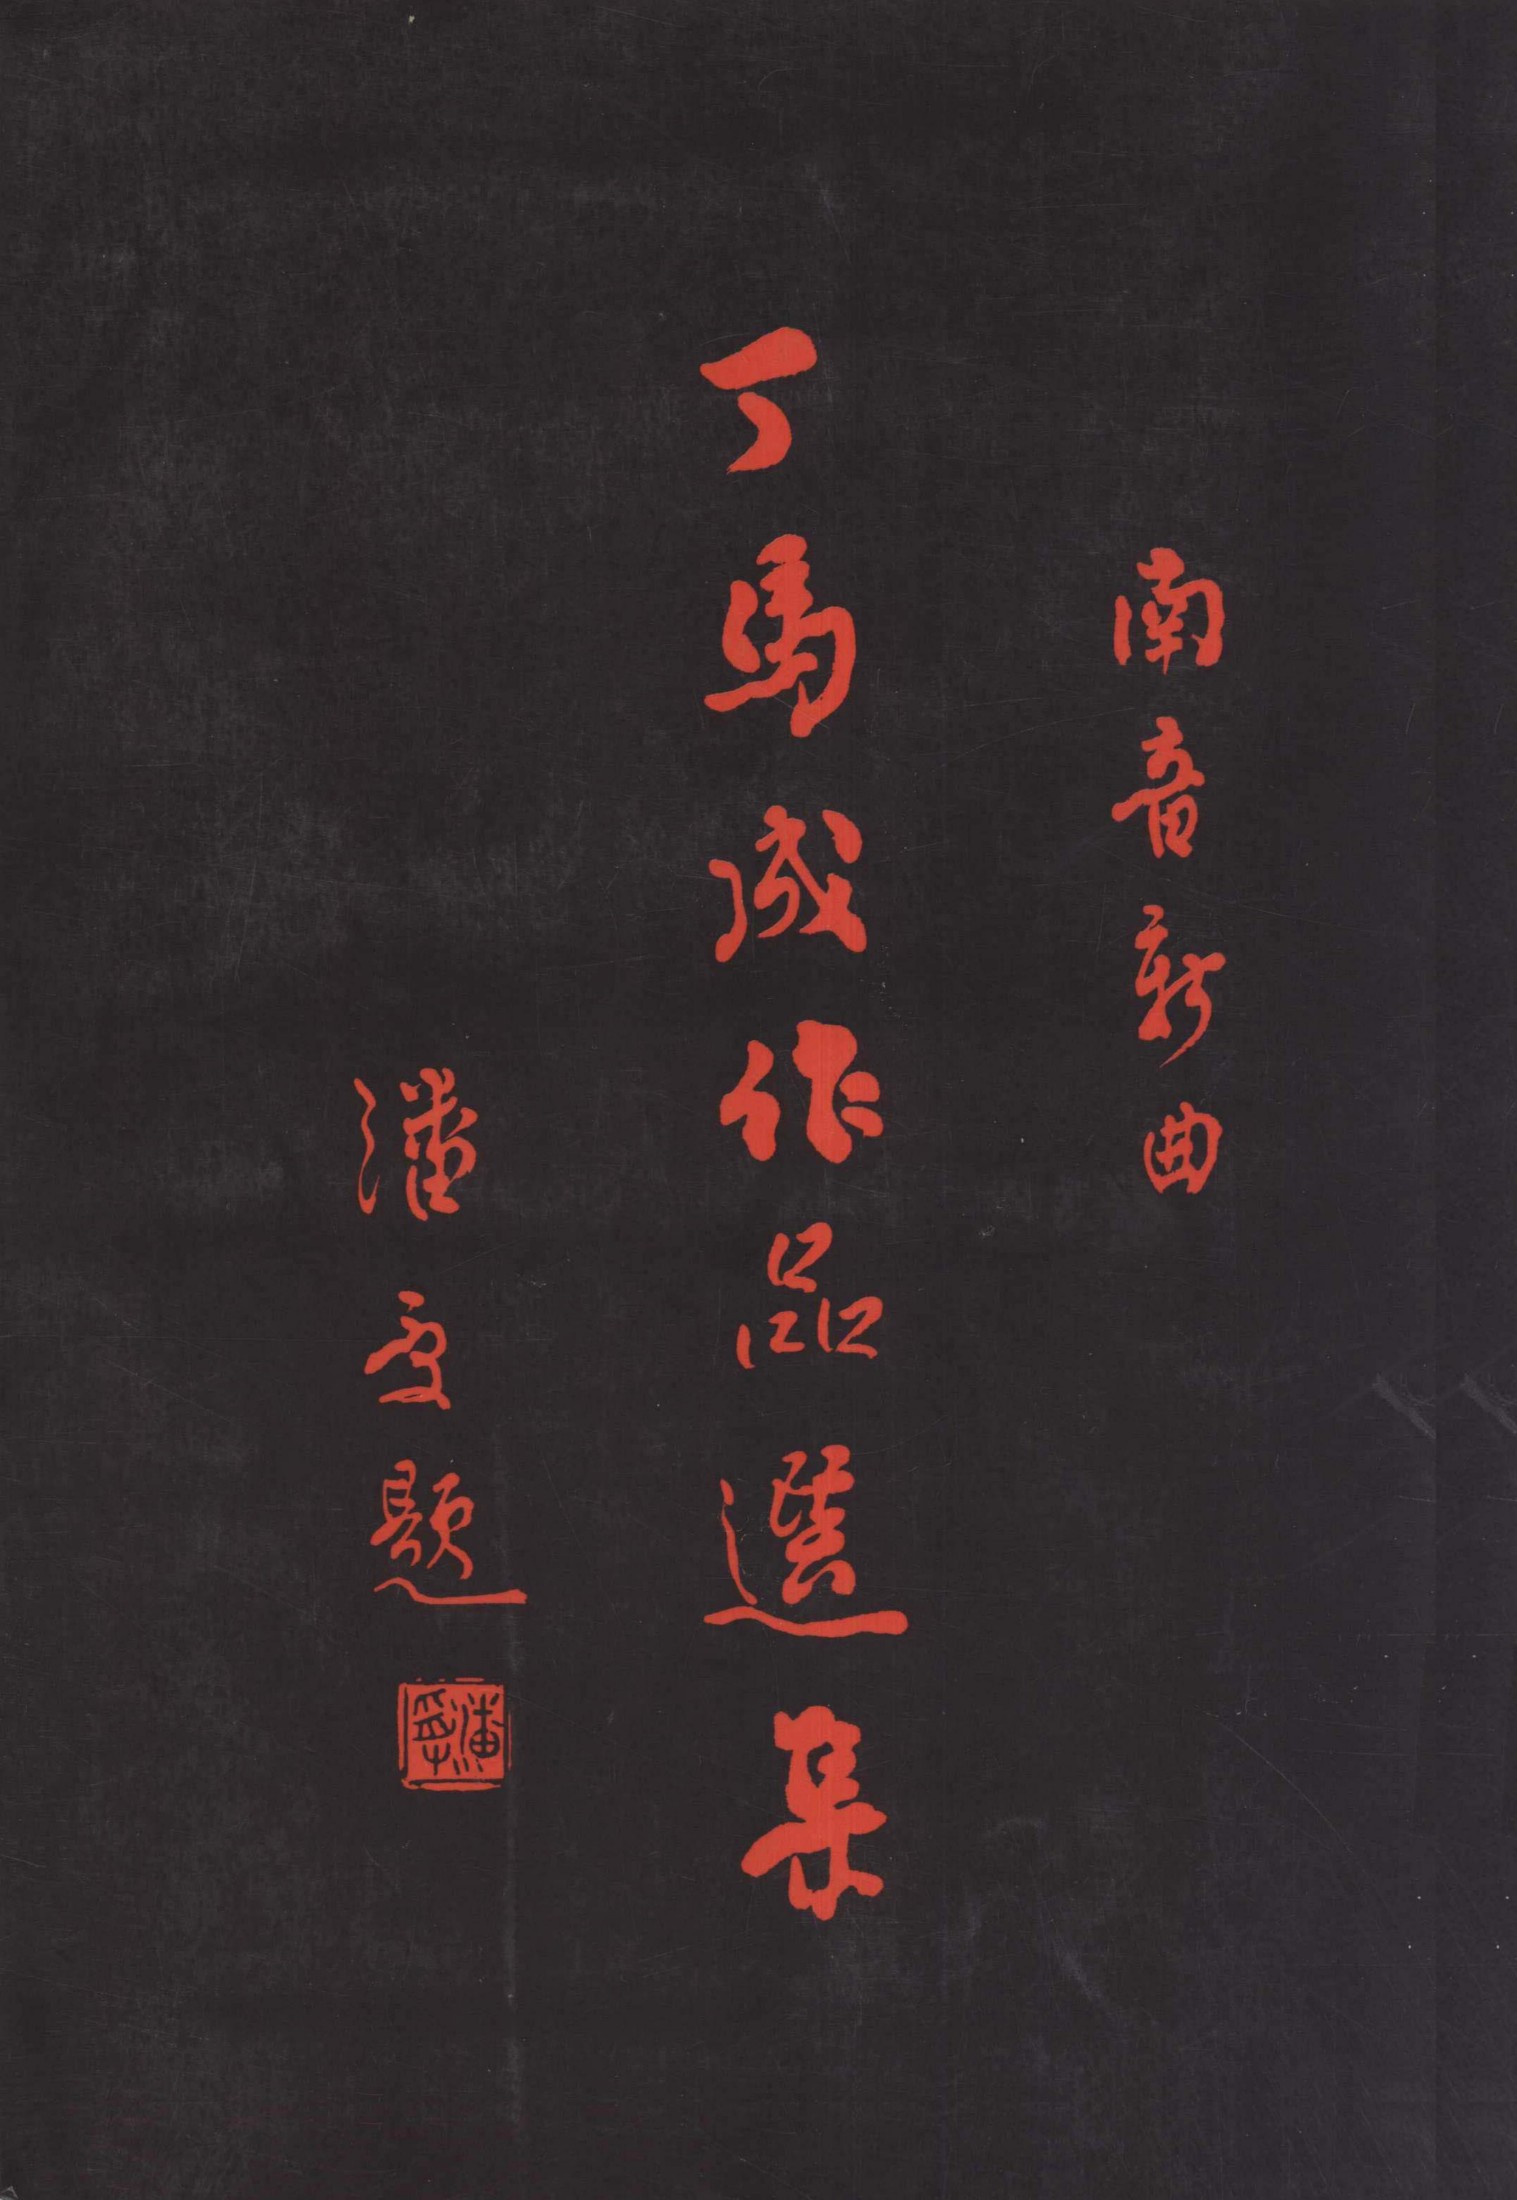 南音新曲
丁馬成作品選集
潘受題
潘受